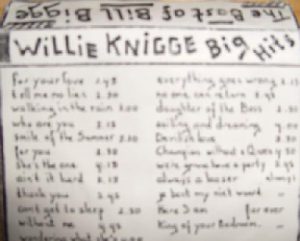 The Best of Bill Bigge
WILLIE KNIGGE Big Hits
for your love 2.45
tell me no lies 2.30
walking in the rain 2.00
who are you 2.15
smile of the Summer 2.30
for you 2.30
She's the one
aint it hard 2.15
thank you 2.45
cant get to sleep 2.30
without me
wondering what
everything goes wrong 2.15
no one can return 2.45
daughter of the Boss 2.30
sailing and dreaming
Devilish love 2.30
Champion without a Queen
we're gonna have a party 2.45
always a looser always
my next word
Here I am for ever
King of your Bedroom